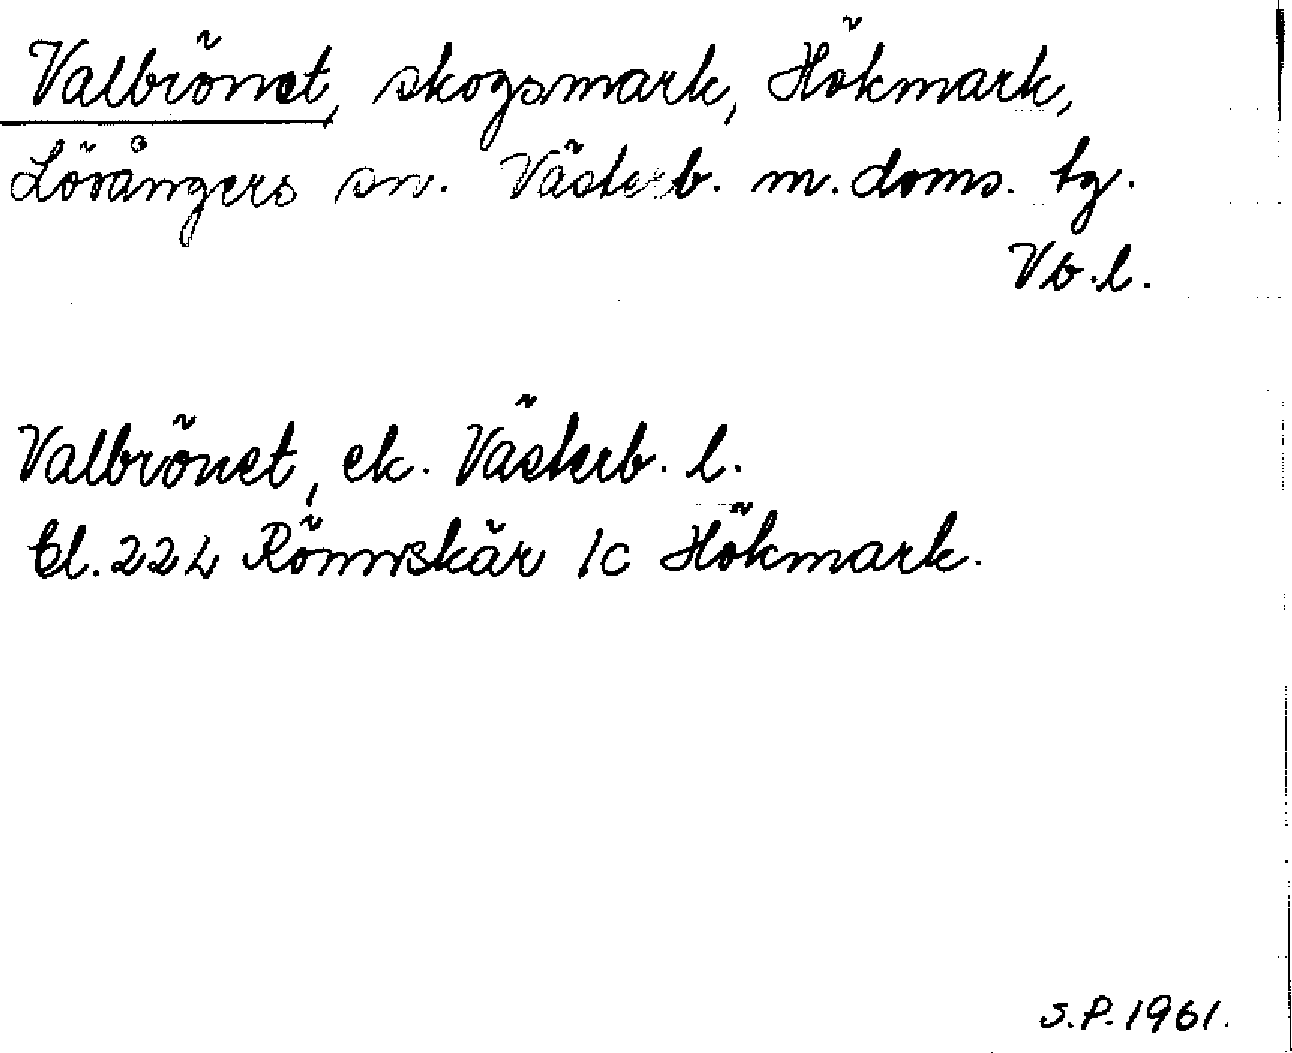 Valbrönet, skogsmark, Hökmark,
Lövångers sn. Västerb. m. doms. tg.
Vb.l.
Valbrönet, ek. Västerb. l.
bl. 22L Rönnskär 1c Hökmark.
S.P. 1961.